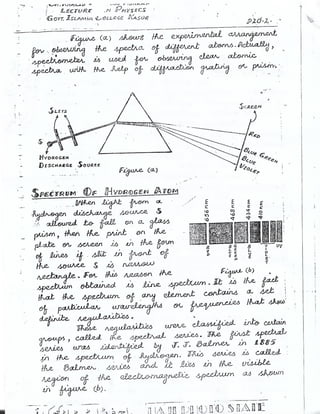 LECTURER IN PHYSICS
GOVT. ISLAMIA COLLEGE KASUR
P20-2-
Figure (a) shows the experimental arrangement
for observing the spectra of different atoms. Actually,
spectrometer is used for observing clear atomic
spectra with the help of diffraction grating or prism.
SLITS
SCREEN
S
RED
BLUE GREEN
BLUE
VIOLET
HYDROGEN
DISCHARGE SOURCE
Figure (a)
SPECTRUM OF HYDROGEN ATOM
When light from a
hydrogen discharge source S
is allowed to fall on a glass
prism, then the print on the
plate or screen is in the form
of lines if slit in front of
the source S is narrow
rectangle. For this reason the
spectrum obtained is line spectrum. It is the fact
656nm
434nm
410nm
Figure (b)
that the spectrum of any element contains a set
of particular wavelengths or frequencies that show
definite regularities.
These regularities were classified into certain
groups, called the spectral series. The first spectral
series was identified by J.J. Balmer in 1885
in the spectrum of hydrogen. This series is called
the Balmer series and it lies in the visible
region of the electromagnetic spectrum as shown
in figure (b).